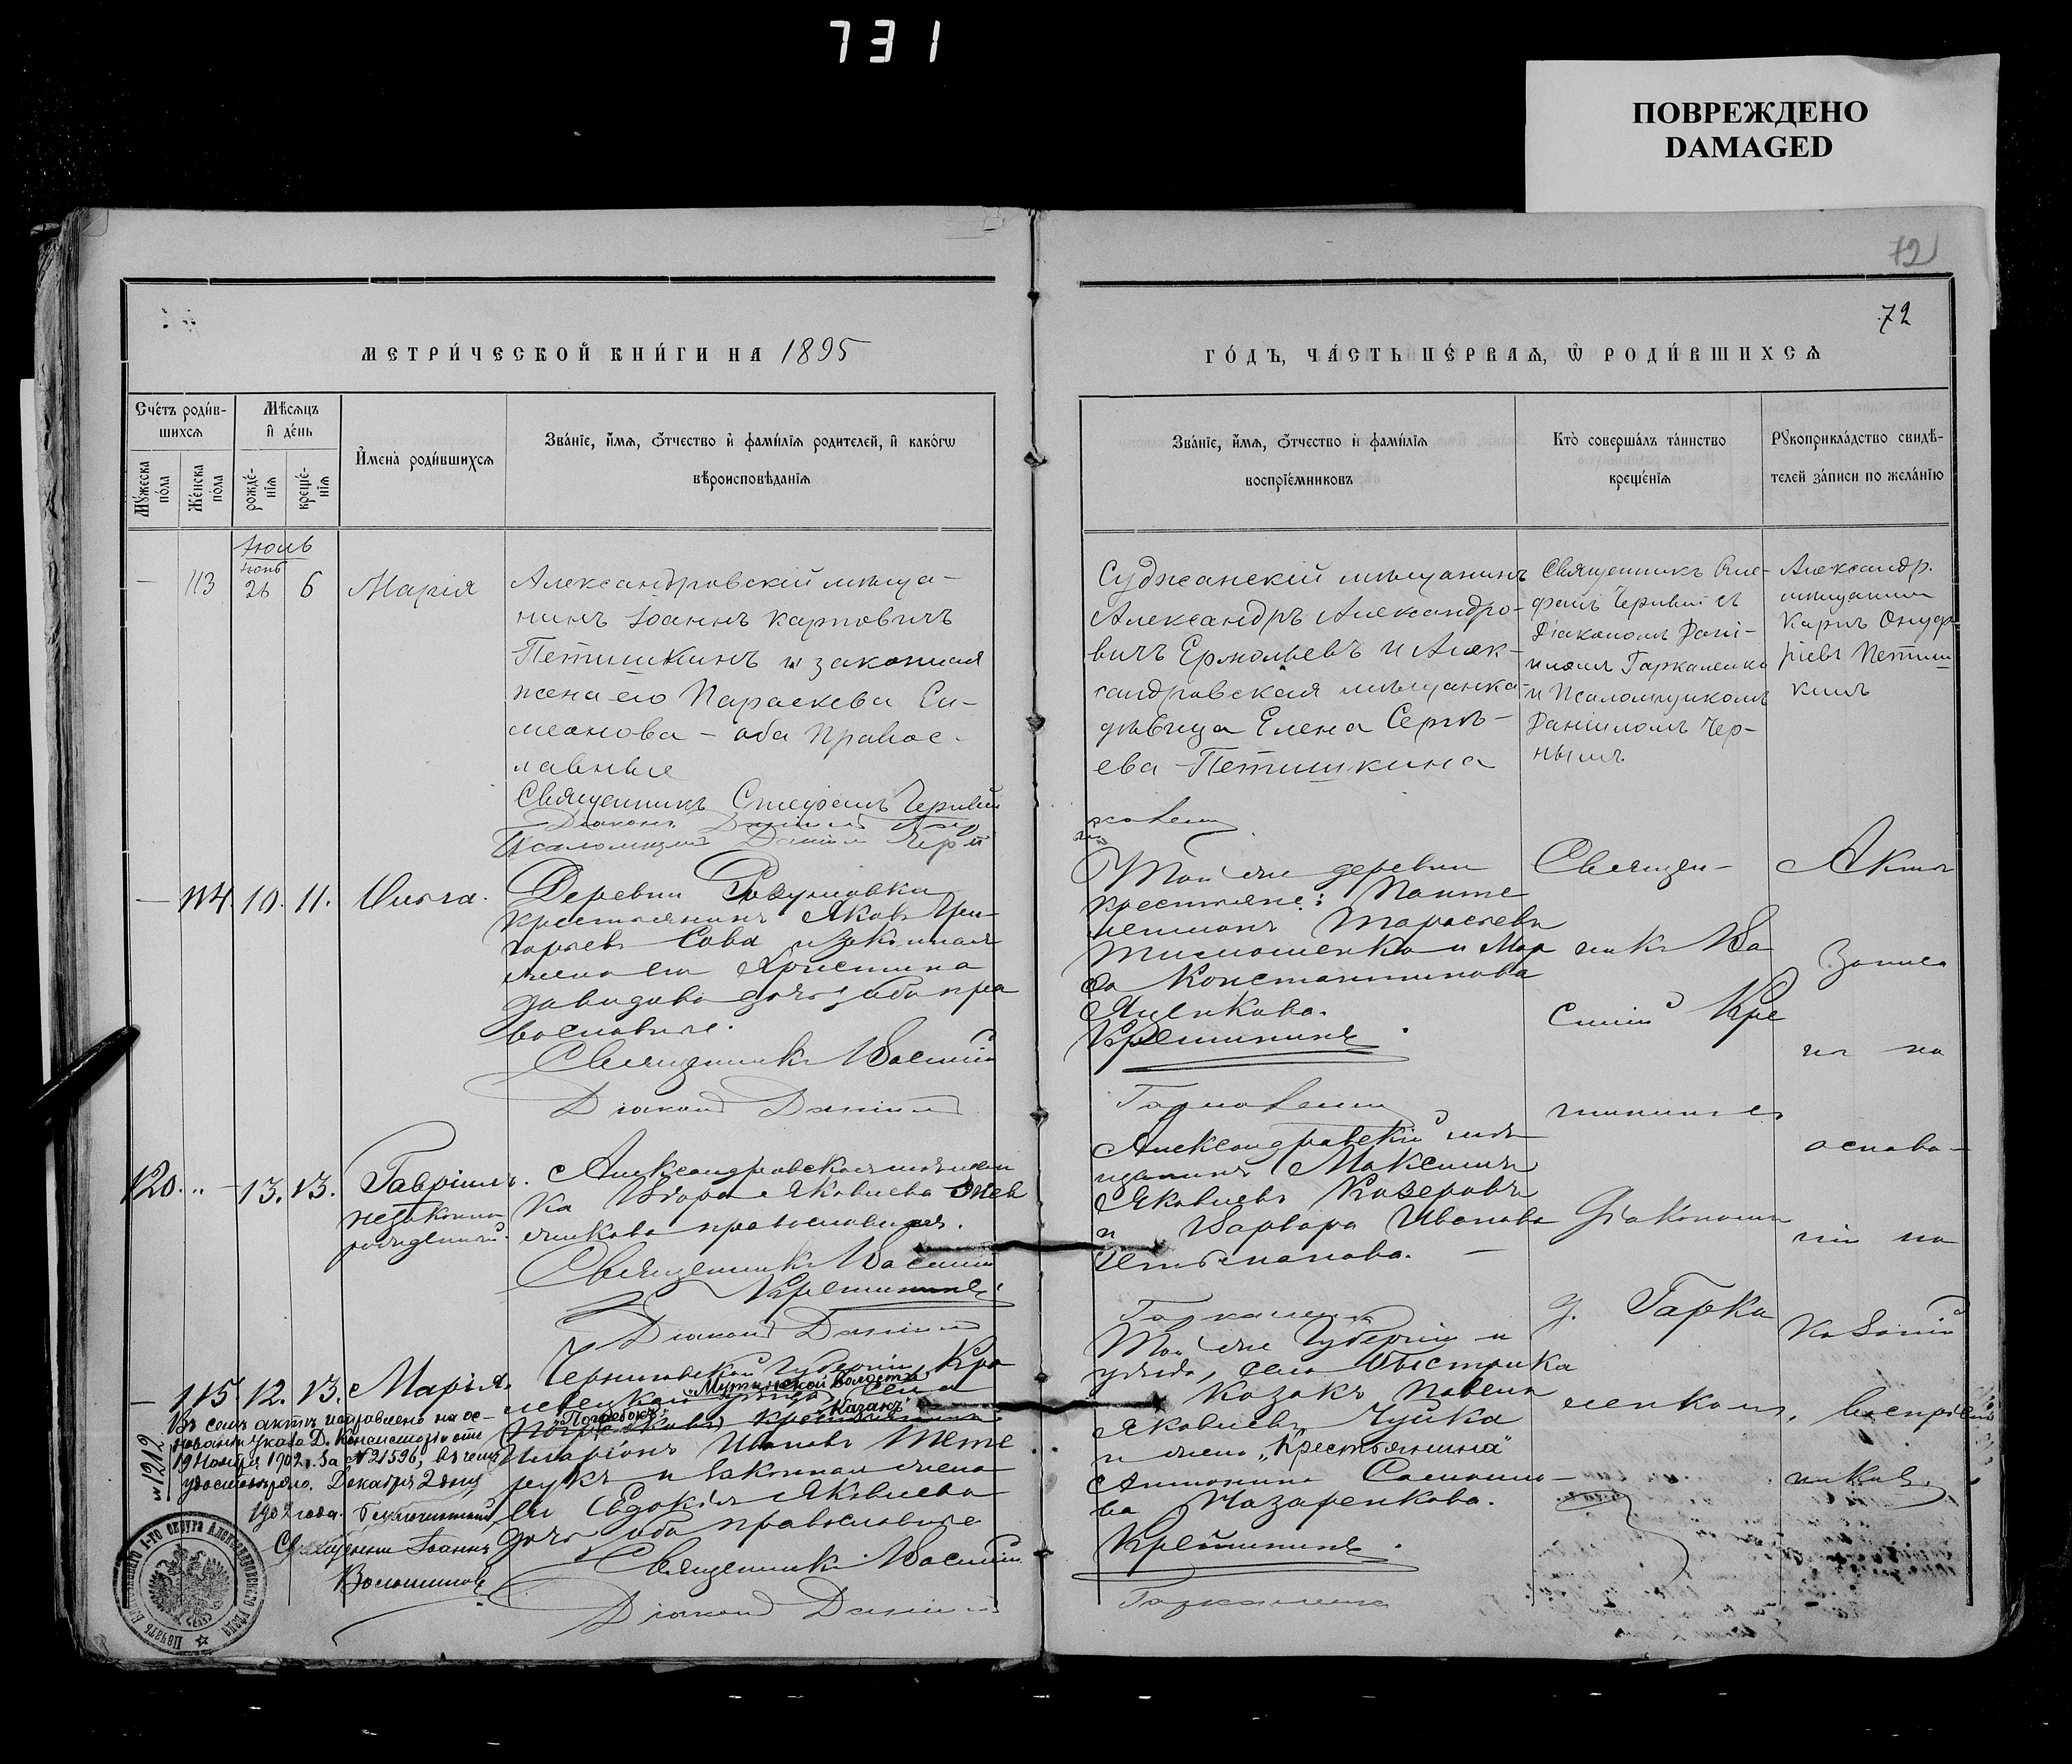 731
ПОВРЕЖДЕНО
DAMAGED
72
72
МЕТРИ́ЧЕСКОЙ КНИ́ГИ НА 1895
ГО́ДЪ, ЧА́СТЬ ПЕ́РВАѦ, Ѡ҆ РОДИ́ВШИХСѦ
Сче́тъ роди́в-
шихсѧ
Мꙋ́жеска
по́ла
Же́нска
по́ла
Мѣ́сѧцъ
и҆ де́нь
рожде́-
нїѧ
креще́-
нїѧ
И҆мена̀ роди́вшихсѧ
Зва́нїе, и҆́мѧ, ѻ҆́тчество и҆ фами́лїѧ родителей, и҆ како́гѡ
вѣроисповѣ́данїѧ
Зва́нїе, и҆́мѧ, ѻ҆́тчество и҆ фами́лїѧ
воспрїе́мниковъ
Кто̀ соверша́лъ та́инство
креще́нїѧ
Рꙋкоприкла́дство свидѣ́-
телей за́писи по жела́нїю
Іюль
Іюнь
— 113 26 6 Марія
Александровскій мѣща-
нинъ Іоаннъ Карповичъ
Петишкинъ и законная
жена его Параскева Си-
меонова – оба Правос-
лавные
Священникъ Стефанъ Черный
Діаконъ Даніилъ
Псаломщикъ Даніилъ
Суджанскій мѣщанинъ
Александръ Александро-
вичъ Ермольевъ и Алек-
сандровская мѣщанка
дѣвица Елена Сергѣ-
ева Петишкина
Священникъ Сте-
фанъ Черный съ
Діакономъ Дані-
иломъ Гаркаленко
и Псаломщикомъ
Даніиломъ Чер-
нымъ
Александр.
мѣщанинъ
Карпъ Онуф-
ріевъ Петиш-
кинъ
— 114. 10. 11. Ольга.
Деревни Разумовки
крестьянинъ Яковъ Гри-
горьевъ Сова и законная
жена его Христина
Давидова дочь, оба пра
вославные.
Священникъ Василій
Діаконъ Даніилъ
Той же деревни
крестьяне: Панте
леимонъ Тарасьевъ
Тимошенко и Мар
ѳа Константинова
Яценкова.
Крешининъ.
Священ-
никъ Ва
силій Кре
шининъ съ
Діакономъ
Д. Гарка
ленкомъ,
Актъ
записа
нъ на
основа-
ніи по
казаній
воспріем
никовъ.
120. „ – 13. 13. Гавріилъ.
незаконно
рожденный.
Александровская мѣщан
ка Ѳедора Яковлева
православная.
Священникъ Василій
Крешининъ
Діаконъ Даніилъ
Александровскій мѣ-
щанинъ Максимъ
Яковлевъ Казеровъ
и Варвара Иванова
— 115 12. 13. Марія.
Черниговской Губерніи, Кро
левецкаго уѣзда, села
„Мутинской Волости
„Погребокъ“ „Казакъ“
Иларіонъ Ивановъ Тете
рукъ и законная жена
его Евдокія Яковлева
дочь оба православные
Священникъ Василій
Діаконъ Даніилъ
Той же Губерніи и
уѣзда, села Быстрика
Казакъ Павелъ
Яковлевъ Чуйка
и жена „Крестьянина“
Антонина Самойло-
ва Назаренкова.
Крешининъ.
№ 1212
Въ семъ актѣ исправлено на ос-
нованіи Указа Д. Консисторіи отъ
19 Ноября 1902 г. за № 21596, въ чемъ
удостовѣряю. Декабря 2 дня
1902 года. Благочинный,
Священникъ Іоаннъ
Волошиновъ
Печать Благочиннаго 1-го округа Александровскаго уѣзда